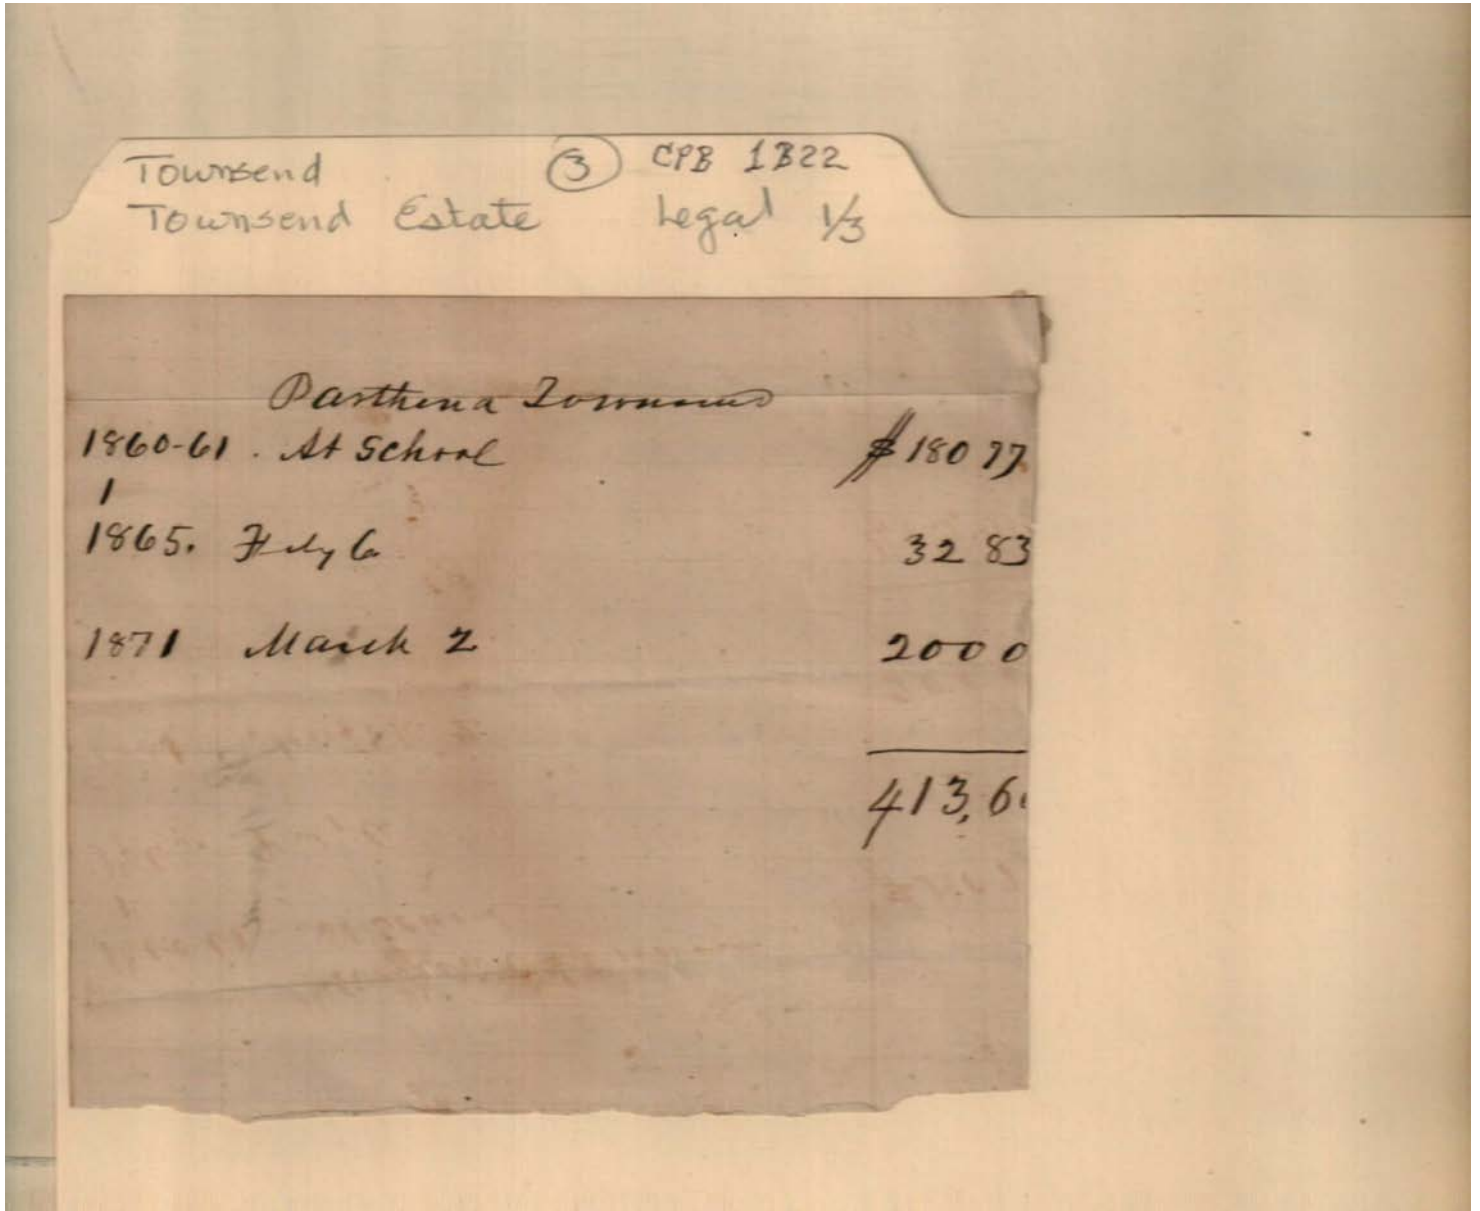 Townsend ③ CPB 1B22
Townsend Estate Legal 1/3
Parthena Townsend
1860-61. At School $180 77
1
1865. Feby 6 32 83
1871 March 2 200 0
413,6